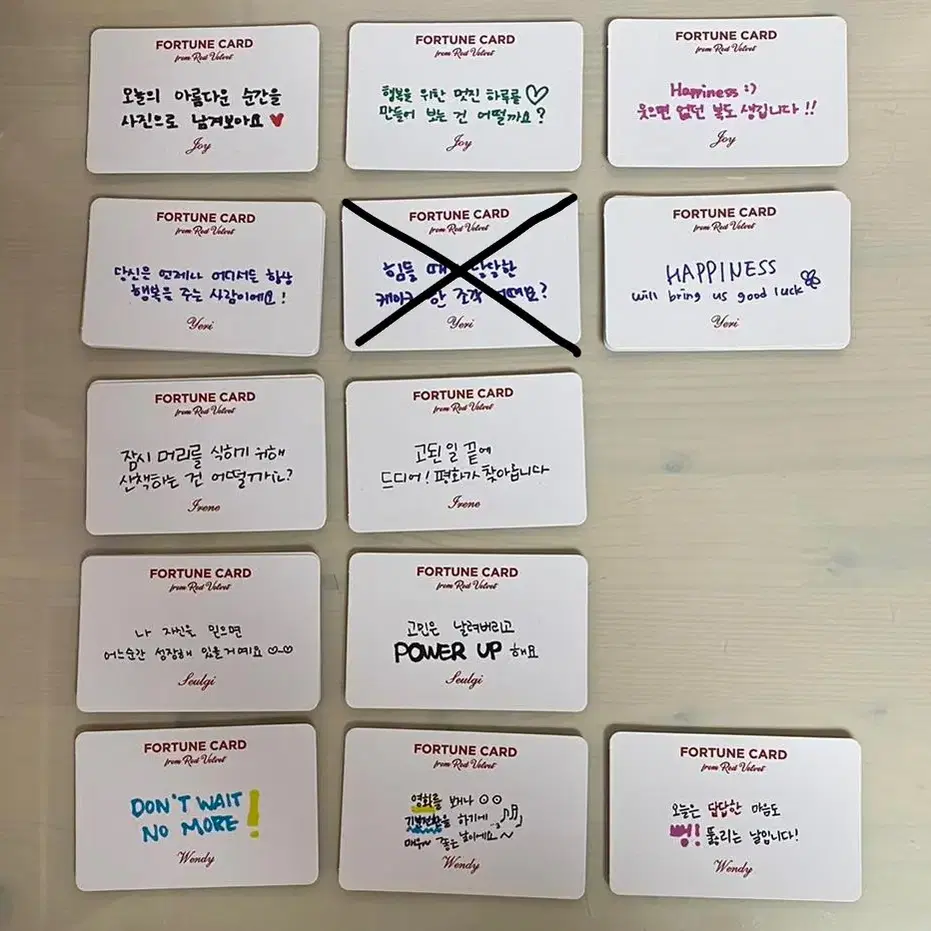 FORTUNE CARD
from Red Velvet
오늘의 아름다운 순간을
사진으로 남겨보아요 ♥
Joy
FORTUNE CARD
from Red Velvet
행복을 위한 멋진 하루를 ♡
만들어 보는 건 어떨까요?
Joy
FORTUNE CARD
from Red Velvet
Happiness :)
웃으면 없던 복도 생깁니다!!
Joy
FORTUNE CARD
from Red Velvet
당신은 언제나 어디서든 항상
행복을 주는 사람이에요!
Yeri
FORTUNE CARD
from Red Velvet
힘들 때
한 조각
Yeri
FORTUNE CARD
from Red Velvet
HAPPINESS
will bring us good luck
Yeri
FORTUNE CARD
from Red Velvet
잠시 머리를 식히기 위해
산책하는 건 어떨까요?
Irene
FORTUNE CARD
from Red Velvet
고된 일 끝에
드디어! 평화가 찾아옵니다
Irene
FORTUNE CARD
from Red Velvet
나 자신을 믿으면
어느순간 성장해 있을거예요
Seulgi
FORTUNE CARD
from Red Velvet
고민은 날려버리고
POWER UP 해요
Seulgi
FORTUNE CARD
from Red Velvet
DON'T WAIT
NO MORE!
Wendy
FORTUNE CARD
from Red Velvet
영화를 보거나
기분전환을 하기에
매우~ 좋은 날이에요~
Wendy
FORTUNE CARD
from Red Velvet
오늘은 답답한 마음도
뻥! 뚫리는 날입니다!
Wendy